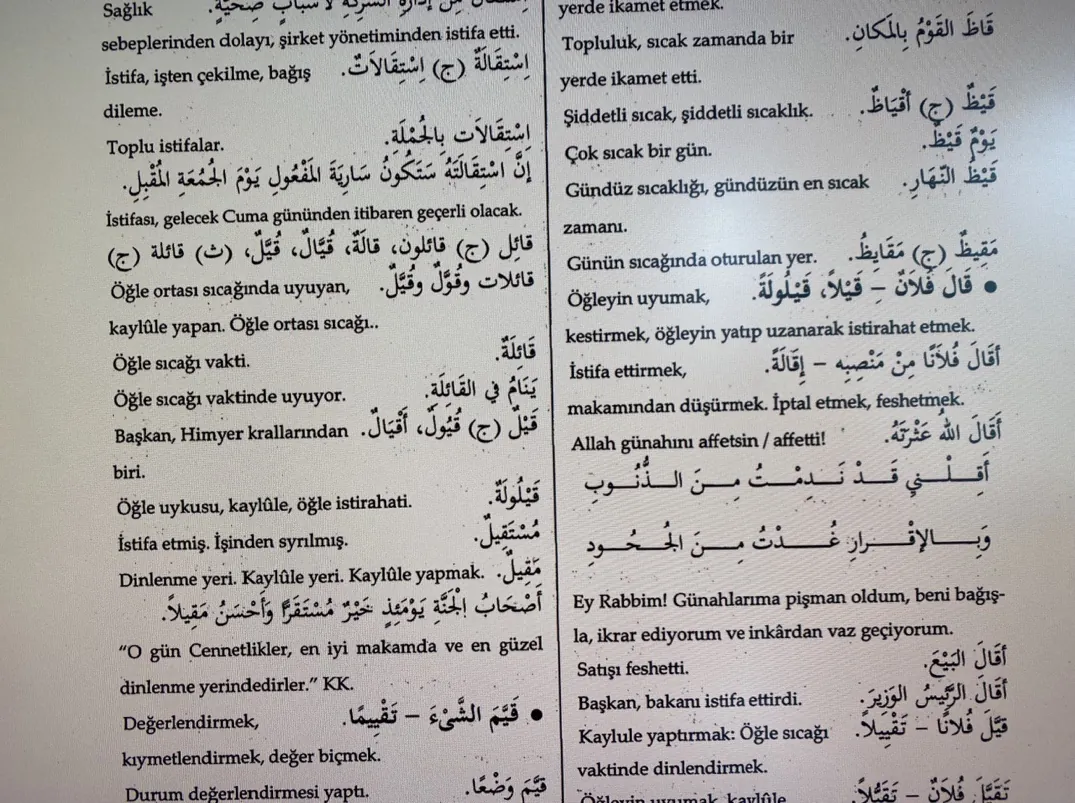 Sağlık
sebeplerinden dolayı, şirket yönetiminden istifa etti.
İstifa, işten çekilme, bağış اِسْتِقَالَةٌ (ج) اِسْتِقَالاَتٌ.
dileme.
Toplu istifalar. اِسْتِقَالاَت بِالْجُمْلَةِ.
إِنَّ اسْتِقَالَتَهُ سَتَكُونُ سَارِيَةَ الْمَفْعُولِ يَوْمَ الْجُمُعَةِ الْمُقْبِلِ.
İstifası, gelecek Cuma gününden itibaren geçerli olacak.
قائِل (ج) قائلون، قالَةٌ، قُيَّالٌ، قُيَّلٌ، (ث) قائلة (ج)
Öğle ortası sıcağında uyuyan, قائلات وقُوَّلٌ وقُيَّلٌ.
kaylûle yapan. Öğle ortası sıcağı..
Öğle sıcağı vakti. قَائِلَةٌ.
Öğle sıcağı vaktinde uyuyor. يَنَامُ في القَائِلَةِ.
Başkan, Himyer krallarından قَيْلٌ (ج) قُيُولٌ، أَقْيَالٌ.
biri.
Öğle uykusu, kaylûle, öğle istirahati. قَيْلُولَةٌ.
İstifa etmiş. İşinden syrılmış. مُسْتَقِيلٌ.
Dinlenme yeri. Kaylûle yeri. Kaylûle yapmak. مَقِيلٌ.
أَصْحَابُ الْجَنَّةِ يَوْمَئِذٍ خَيْرٌ مُسْتَقَرًّا وَأَحْسَنُ مَقِيلاً.
“O gün Cennetlikler, en iyi makamda ve en güzel
dinlenme yerindedirler.” KK.
Değerlendirmek, • قَيَّمَ الشَّيْءَ – تَقْيِيمًا.
kıymetlendirmek, değer biçmek.
Durum değerlendirmesi yaptı. قَيَّمَ وَضْعًا.
yerde ikamet etmek.
Topluluk, sıcak zamanda bir قَاظَ القَوْمُ بِالْمَكَانِ.
yerde ikamet etti.
Şiddetli sıcak, şiddetli sıcaklık. قَيْظٌ (ج) أقْيَاظٌ.
Çok sıcak bir gün. يَوْمٌ قَيْظٌ.
Gündüz sıcaklığı, gündüzün en sıcak قَيْظُ النَّهَارِ.
zamanı.
Günün sıcağında oturulan yer. مَقِيظٌ (ج) مَقَايِظُ.
Öğleyin uyumak, • قَالَ فُلاَنٌ – قَيْلاً، قَيْلُولَةً.
kestirmek, öğleyin yatıp uzanarak istirahat etmek.
İstifa ettirmek, أقَالَ فُلاَنًا مِنْ مَنْصِبِه – إقَالَةً.
makamından düşürmek. İptal etmek, feshetmek.
Allah günahını affetsin / affetti! أَقَالَ اللهُ عَثْرَتَهُ.
أَقِلْنِي قَدْ نَدِمْتُ مِنَ الذُّنُوبِ
وَبِالإِقْرَارِ عُدْتُ مِنَ الْجُحُودِ
Ey Rabbim! Günahlarıma pişman oldum, beni bağış-
la, ikrar ediyorum ve inkârdan vaz geçiyorum.
Satışı feshetti. أقَالَ البَيْعَ.
Başkan, bakanı istifa ettirdi. أقَالَ الرَّئِيسُ الوَزِيرَ.
Kaylule yaptırmak: Öğle sıcağı قَيَّلَ فُلاَنًا – تَقْيِيلاً.
vaktinde dinlendirmek.
Öğleyin uyumak, kaylûle تَقَيَّلَ فُلاَنٌ – تَقَيُّلاً